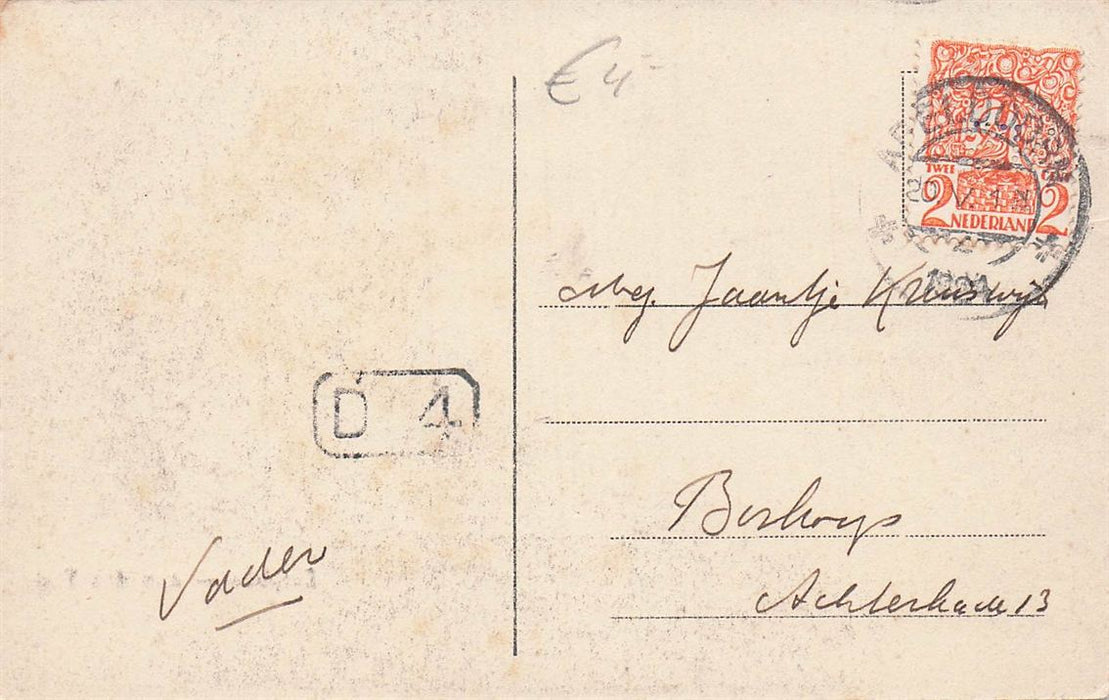 € 4-
APELDOORN
TWEE
20 V
2 NEDERLAND 2
Mej. Jaantje Kruiswijk
D 4
Boskoop
Vader
Achterkade 13